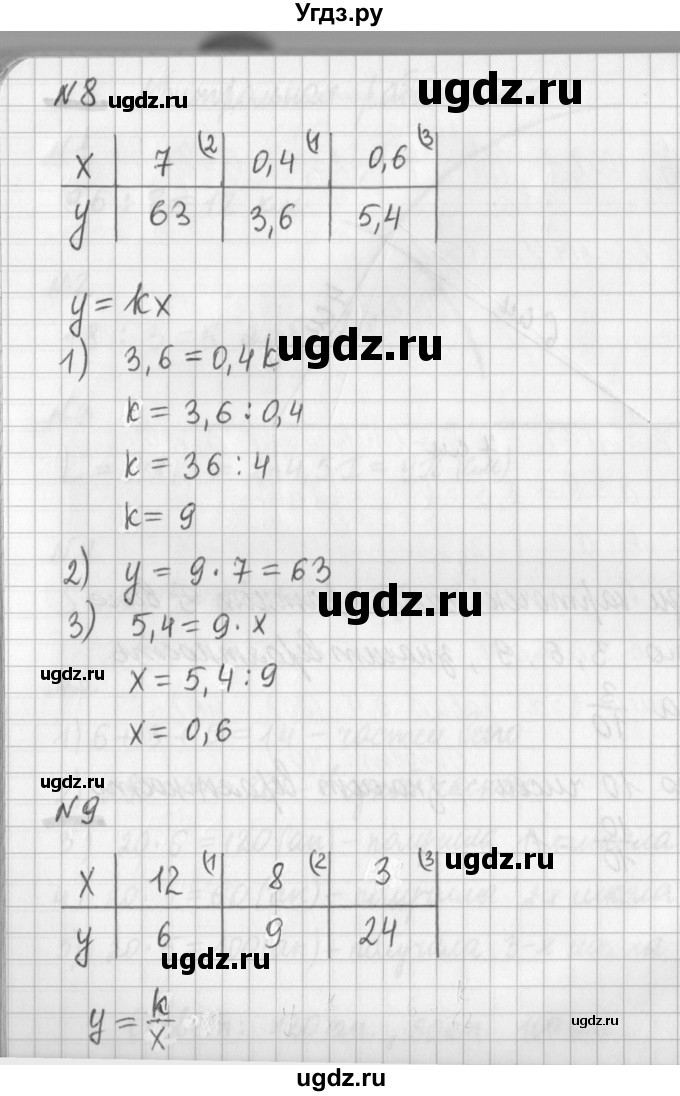 Угдз.ру
№8 ugdz.ru
ugdz.ru
x | 7 (2 | 0,4 (1 | 0,6 (3
y | 63 | 3,6 | 5,4
y = kx
ugdz.ru
1) 3,6 = 0,4k
k = 3,6 : 0,4
k = 36 : 4
k = 9
2) y = 9 · 7 = 63
ugdz.ru
3) 5,4 = 9 · x
ugdz.ru
x = 5,4 : 9
x = 0,6
№9
ugdz.ru
x | 12 (1 | 8 (2 | 3 (3
y | 6 | 9 | 24
ugdz.ru
y = k/x
ugdz.ru
ugdz.ru